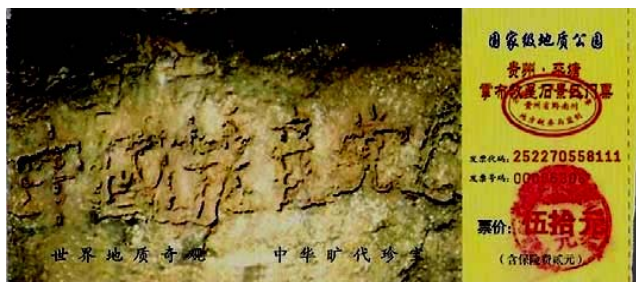 中国共产党
世界地质奇观 中华旷代珍
国家级地质公园
贵州·平塘
掌布救星石景区门票
贵州省黔南州
发票代码: 252270558111
发票号码:
票价: 伍拾元
(含保险费贰元)